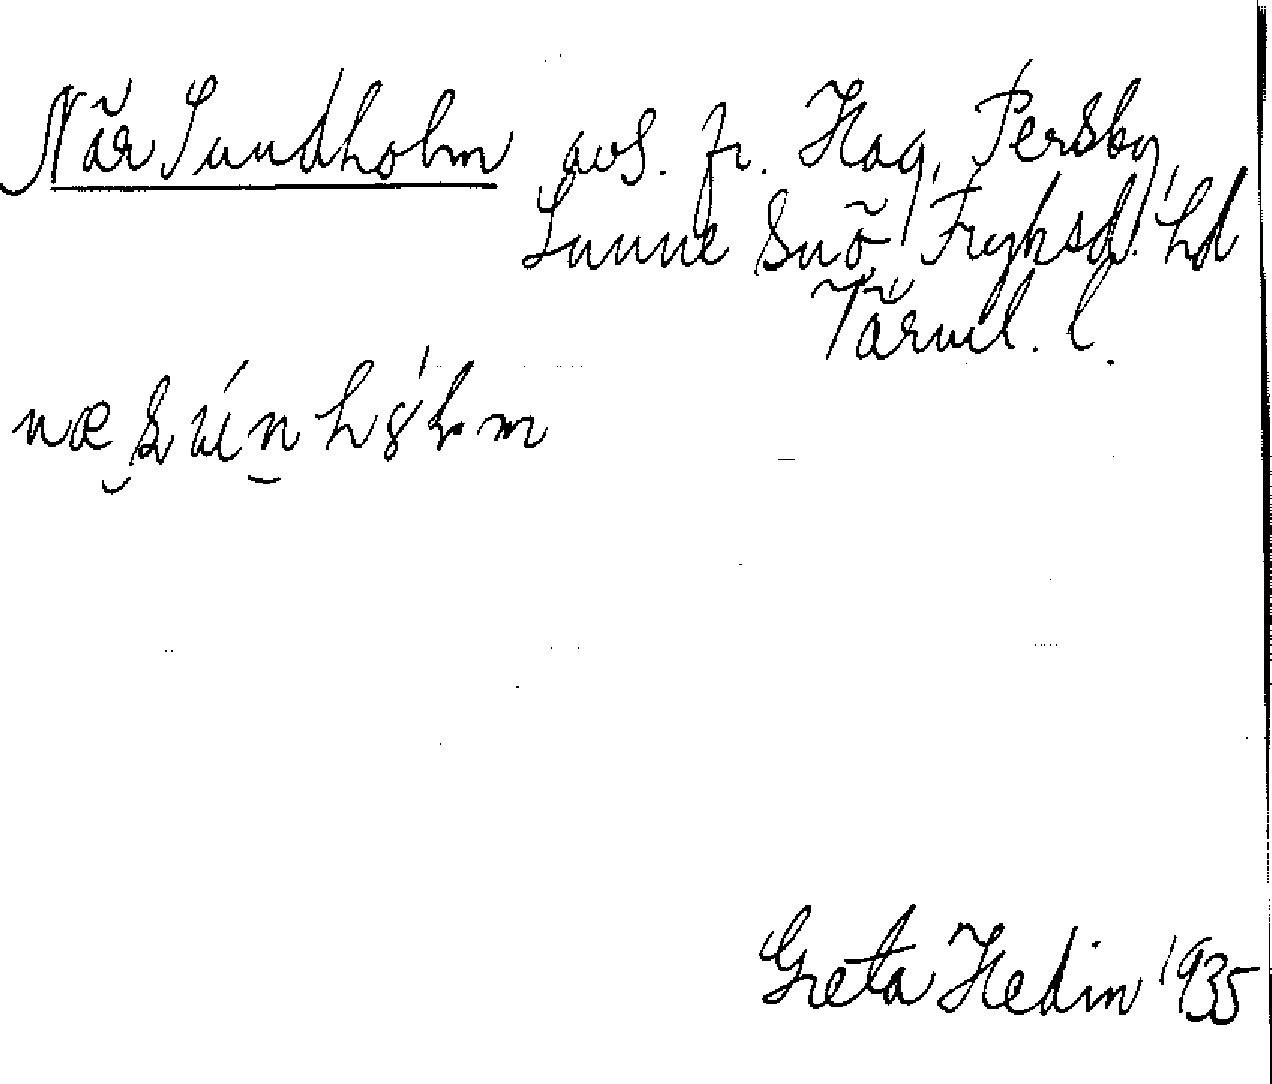 När Sundholm avs. fr. Hag, Persby,
Sunne snö, Fryksd. hd
Värml. l.
Greta Hedin 1935